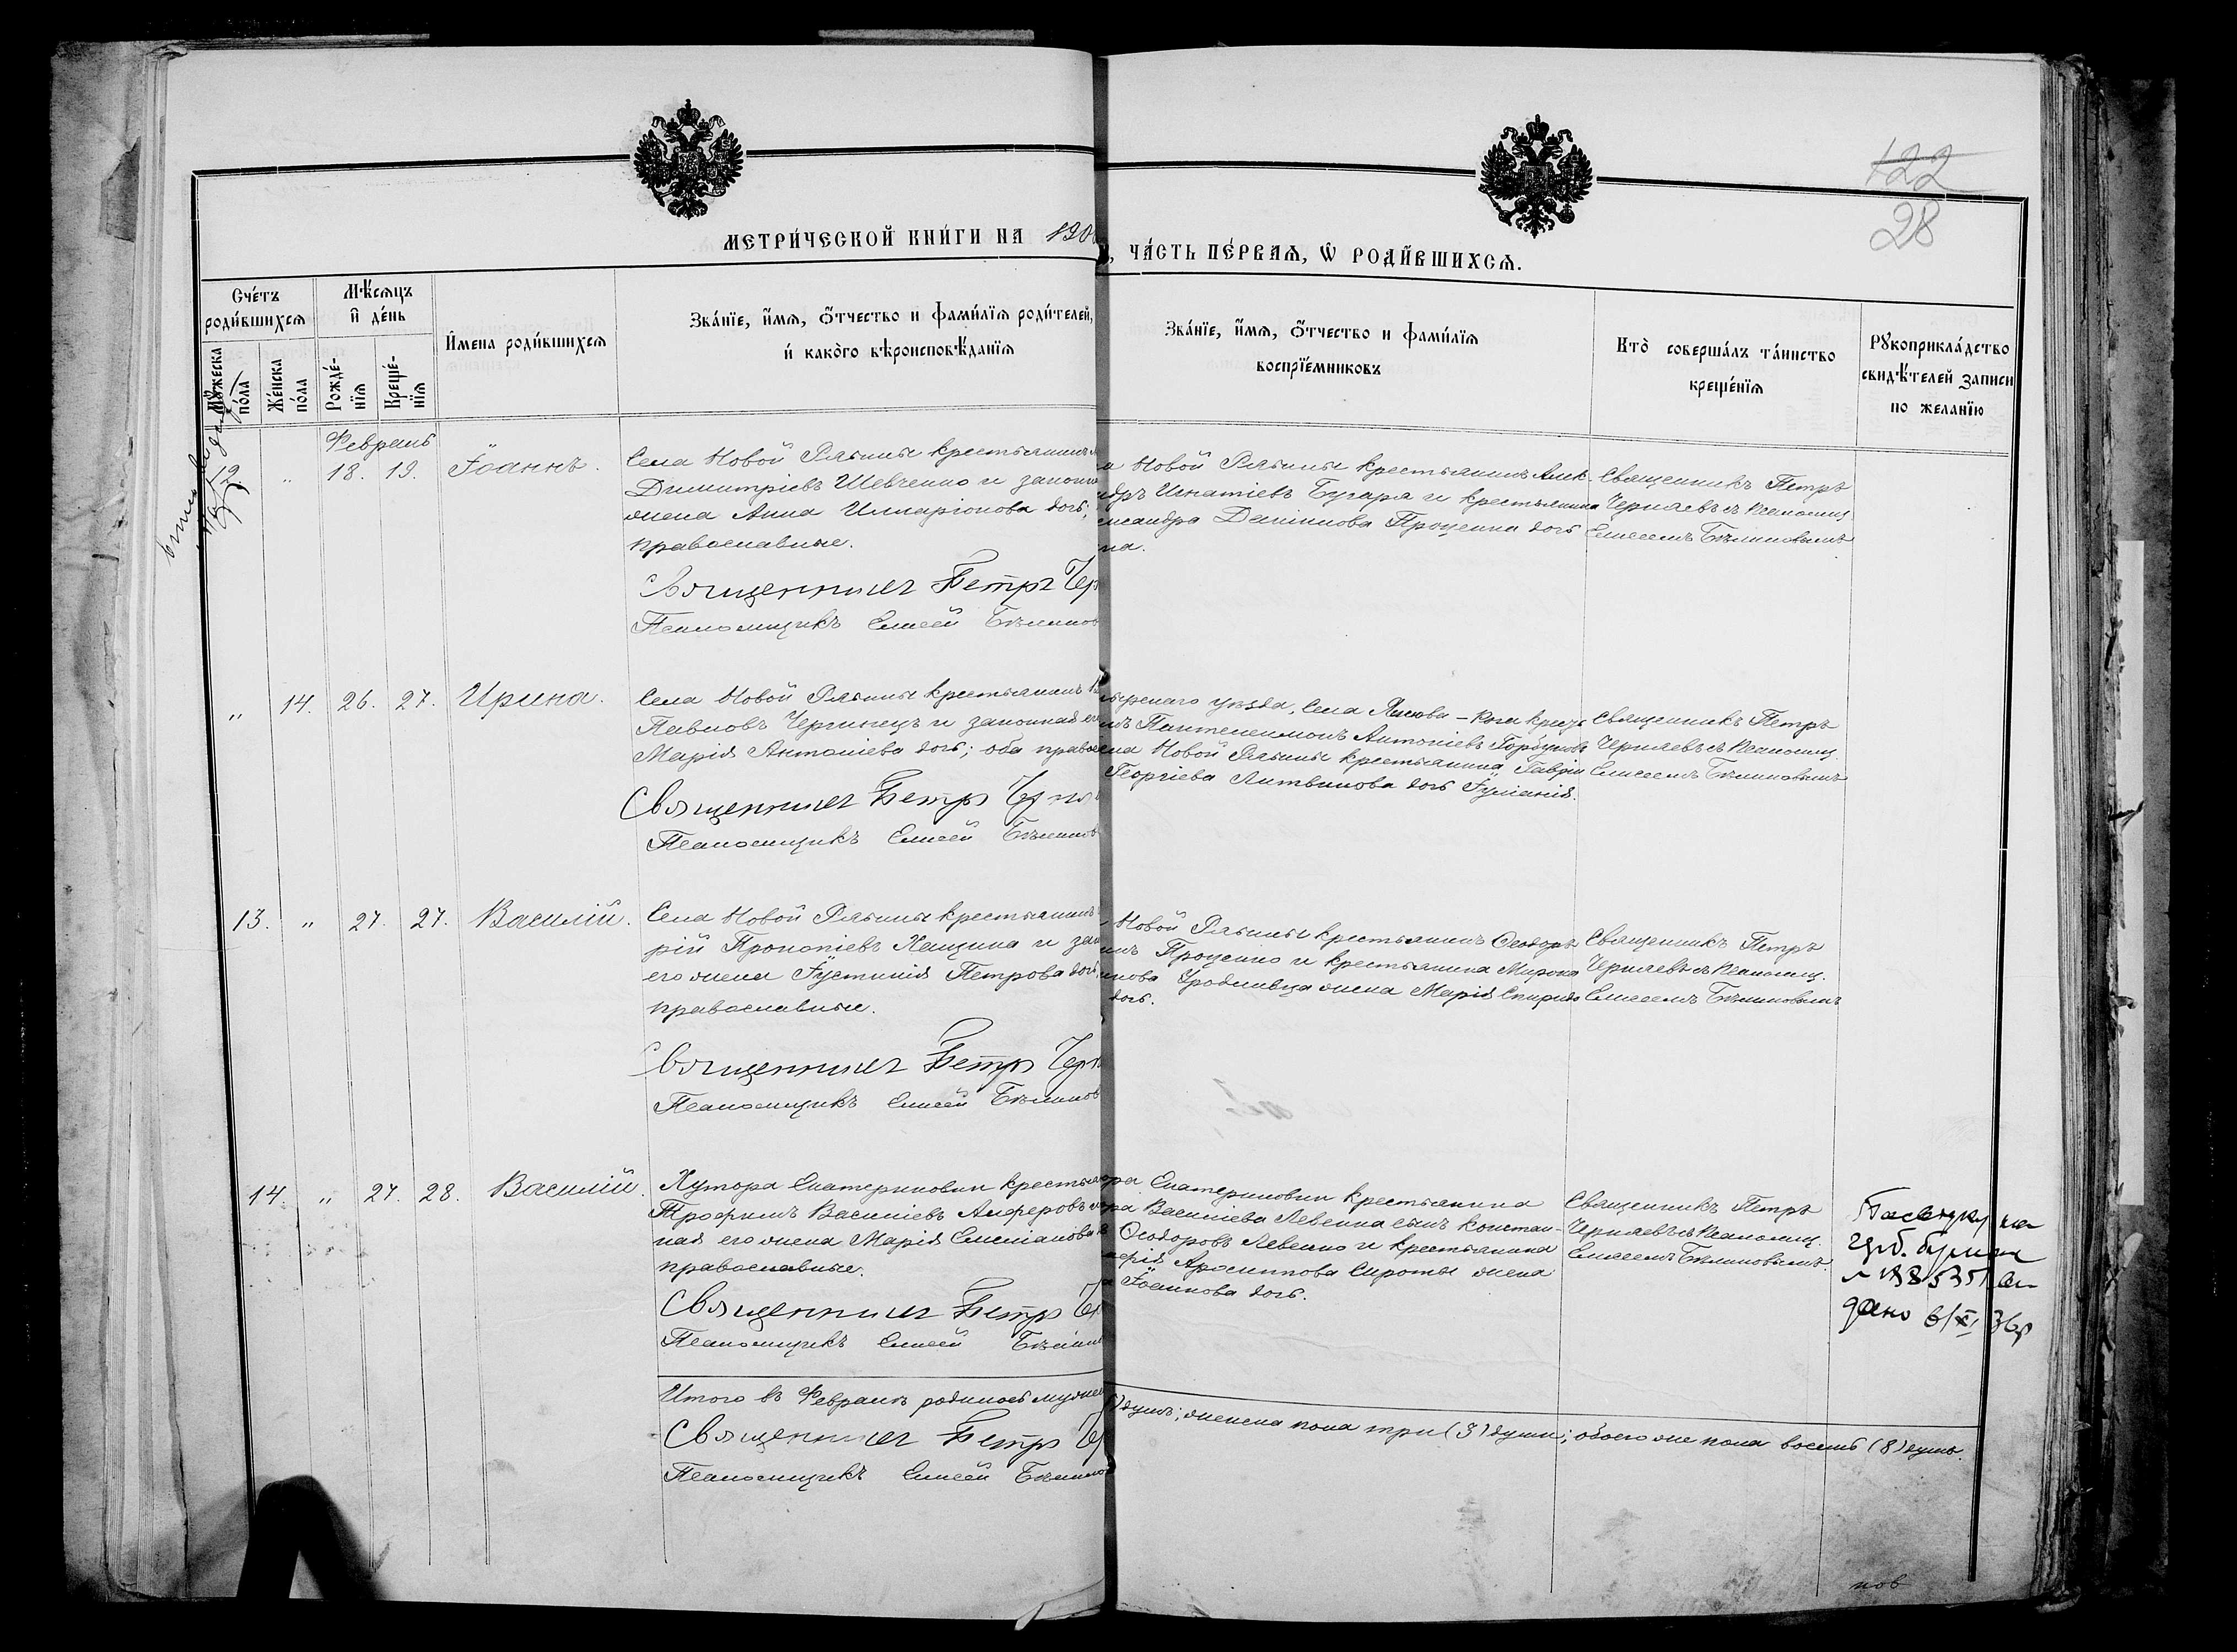 122
28
МЕТРИ́ЧЕСКОЙ КНИ́ГИ НА 190
, ЧА́СТЬ ПЕ́РВАѦ, Ѡ҆ РОДИ́ВШИХСѦ.
Сче́тъ роди́вшихсѧ
Мꙋ́жеска по́ла
Же́нска по́ла
Мѣ́сѧцъ и҆ де́нь
Рожде́-нїѧ
Креще́-нїѧ
И҆мена̀ роди́вшихсѧ
Зва́нїе, и҆́мѧ, ѻ҆́тчество и фами́лїѧ роди́телей,
и҆ како́го вѣроисповѣ́данїѧ
Зва́нїе, и҆́мѧ, ѻ҆́тчество и фами́лїѧ
воспрїе́мниковъ
Кто̀ соверша́лъ та́инство
креще́нїѧ
Рꙋкоприкла́дство
свидѣ́телей записи
по желанїю
Февраль
12. " 18. 19. Іоаннъ.
Села Новой Рябины крестьянинъ
Димитріевъ Шевченко и законн
жена Анна Илларіонова дочь,
православные.
Священникъ Петръ Чер
Псаломщикъ Елисей Бѣлинов
а Новой Рябины крестьянинъ Алек-
ндръ Игнатіевъ Бугаря и крестьянина
Даніилова Проценка дочь
на.
Священникъ Петръ
Черняевъ съ псаломщ.
Елисеемъ Бѣлиновымъ
" 14. 26. 27. Ирина.
Села Новой Рябины крестьянинъ
Павловъ Чернинецъ и законная ег
Марія Антоніева дочь; оба правос
Священникъ Петръ Черня
Псаломщикъ Елисей Бѣлинов
уѣзда, села крест
нъ Пантелеимонъ Антоніевъ Горбуновъ
ела Новой Рябины крестьянина Гавріи
Георгіева Литвинова дочь Іуліанія.
Священникъ Петръ
Черняевъ съ псаломщ.
Елисеемъ Бѣлиновымъ
13. " 27. 27. Василій.
Села Новой Рябины крестьянинъ
рій Прокопіевъ Лащина и зак
его жена Іустинія Петрова дочь,
православные.
Священникъ Петръ Черн
Псаломщикъ Елисей Бѣлинов
Новой Рябины крестьянинъ Ѳеодоръ
инъ Проценко и крестьянина Мирона
нова Уродливца жена Марія Спиридо
дочь.
Священникъ Петръ
Черняевъ съ псаломщ.
Елисеемъ Бѣлиновымъ
14. " 27. 28. Василій.
Хутора Екатериновки крестья
Трофимъ Васильевъ Алферовъ и
ная его жена Марія Емеліанова
православные.
Священникъ Петръ Че
Псаломщикъ Елисей Бѣлин
ора Екатериновки крестьянина
ра Васильева Левенка сынъ Констан-
Ѳеодоровъ Левенко и крестьянина
ерія Сироты жена
а Іоаннова дочь.
Священникъ Петръ
Черняевъ съ псаломщ.
Елисеемъ Бѣлиновымъ.
на
дано 6/XI 36р
Итого въ Февралѣ родилось мужес
) душъ; женска пола три (3) души; обоего же пола восемь (8) душъ.
Священникъ Петръ Че
Псаломщикъ Елисей Бѣлинов
нов